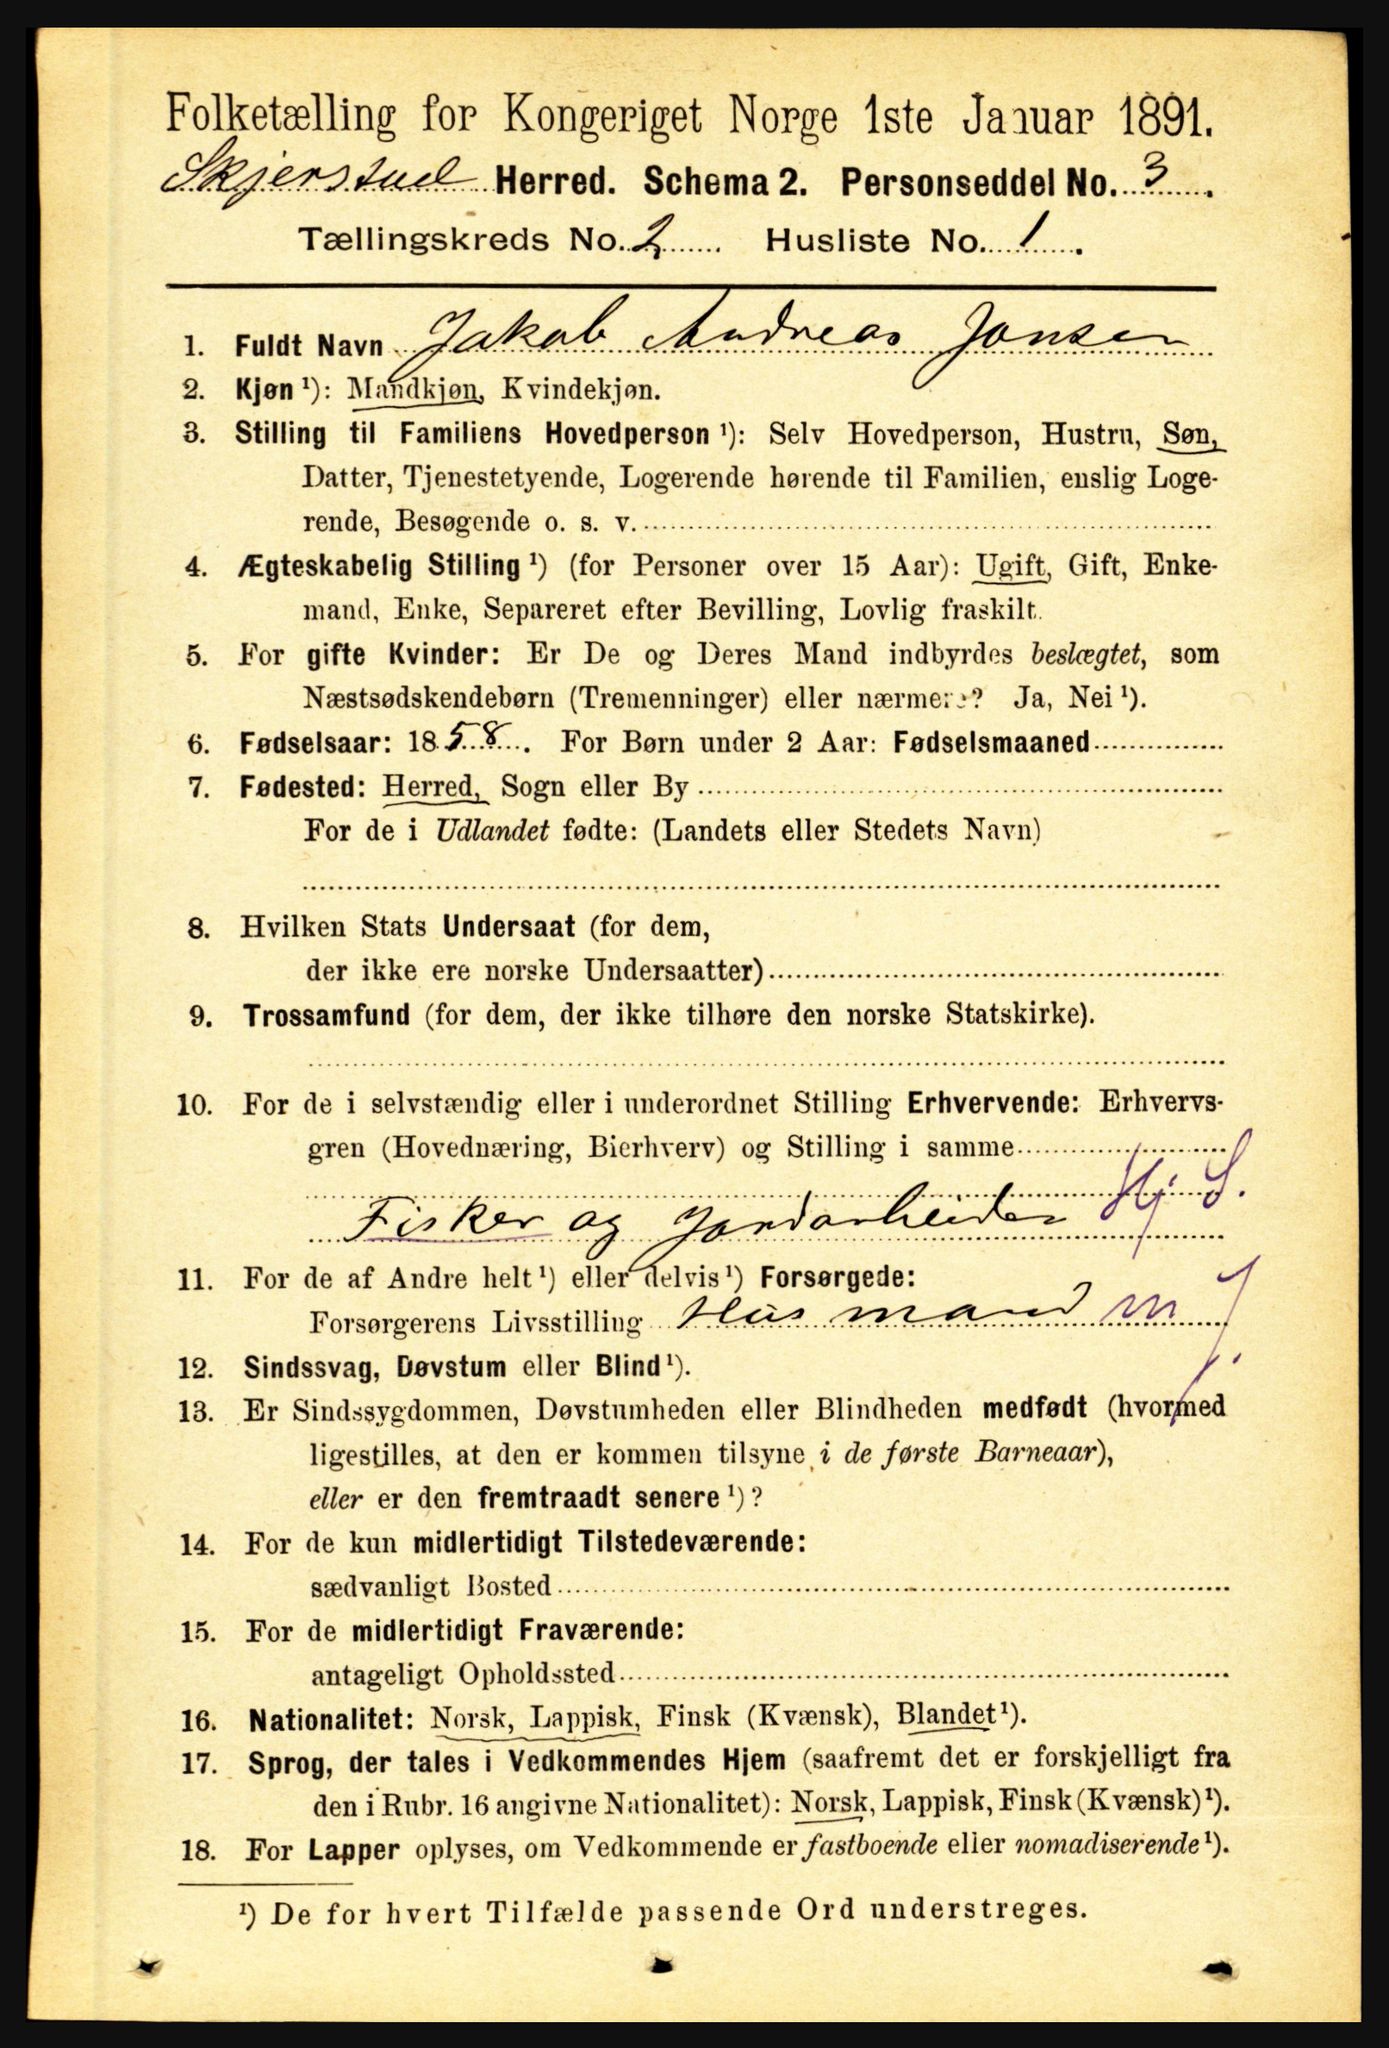 Folketælling for Kongeriget Norge 1ste Januar 1891.
Skjerstad Herred. Schema 2. Personseddel No. 3.
Tællingskreds No. 2 Husliste No. 1.
1. Fuldt Navn Jakob Andreas Jonsen
2. Kjøn ¹): Mandkjøn, Kvindekjøn.
3. Stilling til Familiens Hovedperson ¹): Selv Hovedperson, Hustru, Søn,
Datter, Tjenestetyende, Logerende hørende til Familien, enslig Loge-
rende, Besøgende o. s. v.
4. Ægteskabelig Stilling ¹) (for Personer over 15 Aar): Ugift, Gift, Enke-
mand, Enke, Separeret efter Bevilling, Lovlig fraskilt.
5. For gifte Kvinder: Er De og Deres Mand indbyrdes beslægtet, som
Næstsødskendebørn (Tremenninger) eller nærmere? Ja, Nei ¹).
6. Fødselsaar: 1858. For Børn under 2 Aar: Fødselsmaaned
7. Fødested: Herred, Sogn eller By
For de i Udlandet fødte: (Landets eller Stedets Navn)
8. Hvilken Stats Undersaat (for dem,
der ikke ere norske Undersaatter)
9. Trossamfund (for dem, der ikke tilhøre den norske Statskirke).
10. For de i selvstændig eller i underordnet Stilling Erhvervende: Erhvervs-
gren (Hovednæring, Bierhverv) og Stilling i samme
Fisker og Jordarbeider Hj. S.
11. For de af Andre helt ¹) eller delvis ¹) Forsørgede:
Forsørgerens Livsstilling Husmand m J.
12. Sindssvag, Døvstum eller Blind ¹).
13. Er Sindssygdommen, Døvstumheden eller Blindheden medfødt (hvormed
ligestilles, at den er kommen tilsyne i de første Barneaar),
eller er den fremtraadt senere ¹)?
14. For de kun midlertidigt Tilstedeværende:
sædvanligt Bosted
15. For de midlertidigt Fraværende:
antageligt Opholdssted
16. Nationalitet: Norsk, Lappisk, Finsk (Kvænsk), Blandet ¹).
17. Sprog, der tales i Vedkommendes Hjem (saafremt det er forskjelligt fra
den i Rubr. 16 angivne Nationalitet): Norsk, Lappisk, Finsk (Kvænsk) ¹).
18. For Lapper oplyses, om Vedkommende er fastboende eller nomadiserende ¹).
¹) De for hvert Tilfælde passende Ord understreges.